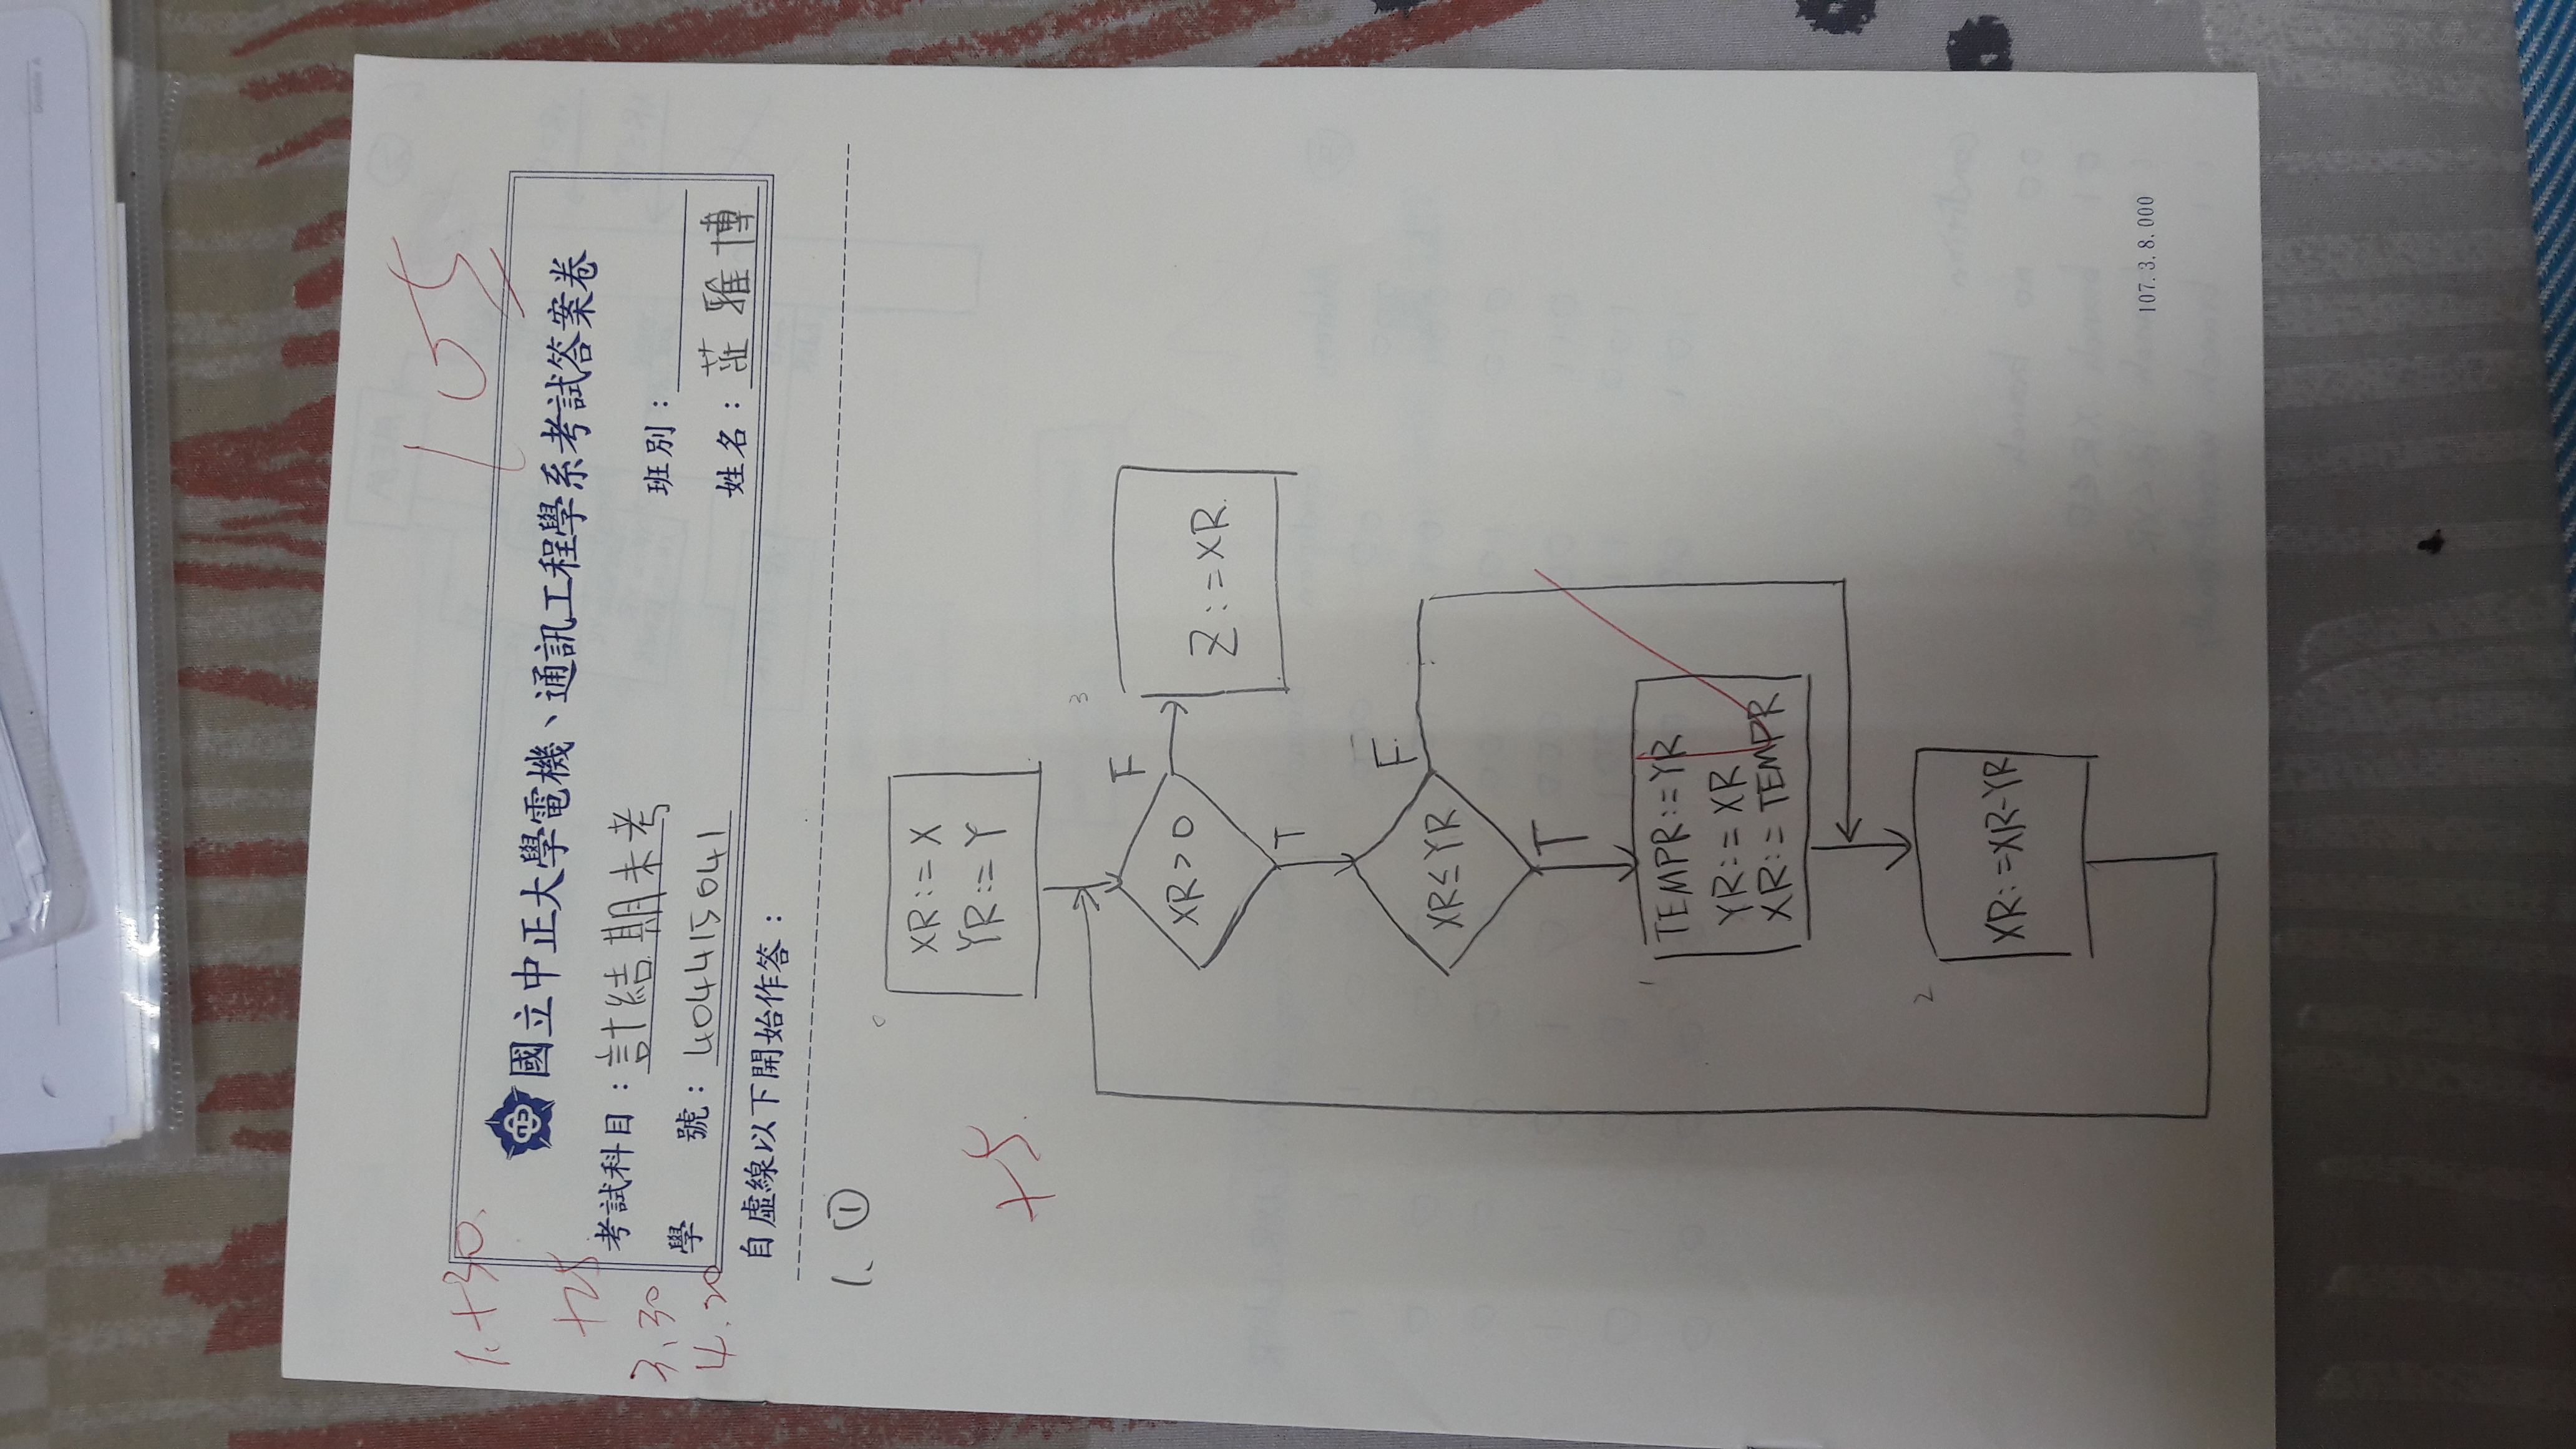 Double A
105
1. +30.
+25
3. 30
4. 20
國立中正大學電機、通訊工程學系考試答案卷
考試科目：計結期末考
班別：
學 號：404415041
姓名：莊雅博
自虛線以下開始作答：
1. ①
0
XR:=X
YR:=Y
+5.
3
XR>0
F
Z:=XR.
T
XR≤YR
F.
T
1
TEMPR:=YR
YR:=XR
XR:=TEMPR
2
XR:=XR-YR
107.3.8.000